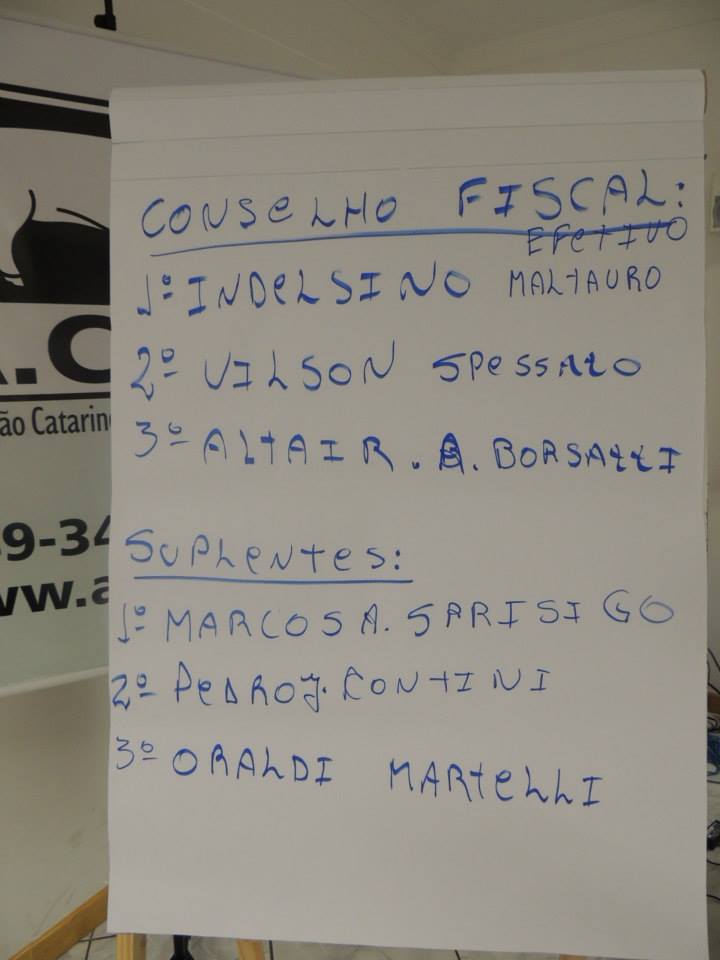 CONSELHO FISCAL:
EFETIVO
1º INDELSINO MALTAURO
2º VILSON SPESSATO
3º ALTAIR. A. BORSATTI
SUPLENTES:
1º MARCOS A. SARISIGO
2º PEDRO J. CONTINI
3º ORALDI MARTELLI
A.C
ão Catarin
9-34
ww.a